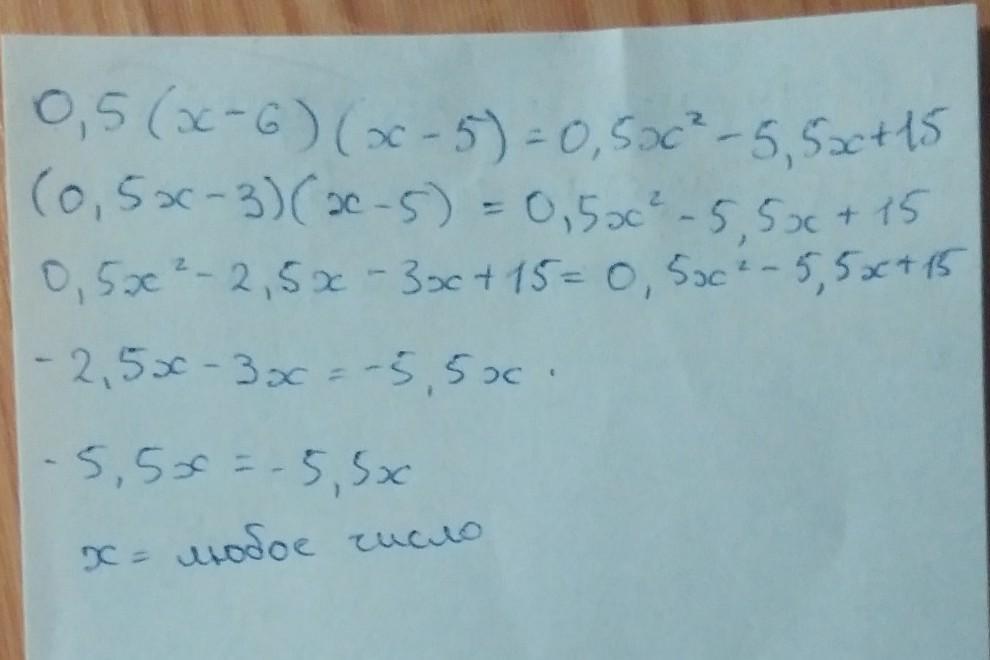 0,5(x-6)(x-5)=0,5x²-5,5x+15
(0,5x-3)(x-5)=0,5x²-5,5x+15
0,5x²-2,5x-3x+15=0,5x²-5,5x+15
-2,5x-3x=-5,5x.
-5,5x=-5,5x
x= любое число